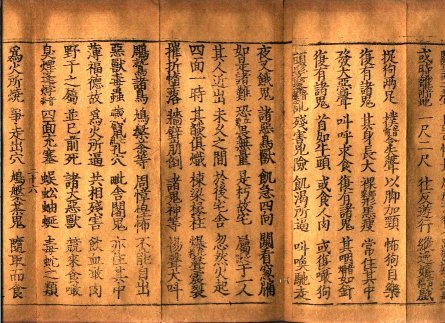 或時離地 一尺二尺 往返遊行 縱逸嬉戲
捉狗兩足 撲令失聲 以脚加頸 怖狗自樂
復有諸鬼 其身長大 裸形黑瘦 常住其中
發大惡聲 叫呼求食 復有諸鬼 其咽如針
復有諸鬼 首如牛頭 或食人肉 或復噉狗
頭髮蓬亂 殘害兇險 飢渴所逼 叫喚馳走
夜叉餓鬼 諸惡鳥獸 飢急四向 闚看窓牖
如是諸難 恐畏無量 是朽故宅 屬于一人
其人近出 未久之間 於後宅舍 忽然火起
四面一時 其焰俱熾 棟梁椽柱 爆聲震裂
摧折墮落 牆壁崩倒 諸鬼神等 揚聲大叫
鵰鷲諸鳥 鳩槃荼等 周慞惶怖 不能自出
惡獸毒蟲 藏竄孔穴 毗舍闍鬼 亦住其中
薄福德故 爲火所逼 共相殘害 飲血噉肉
野干之屬 並已前死 諸大惡獸 競來食噉
臭煙熢㶿 四面充塞 蜈蚣蚰蜒 毒蛇之類
二十六
爲火所燒 爭走出穴 鳩槃荼鬼 隨取而食